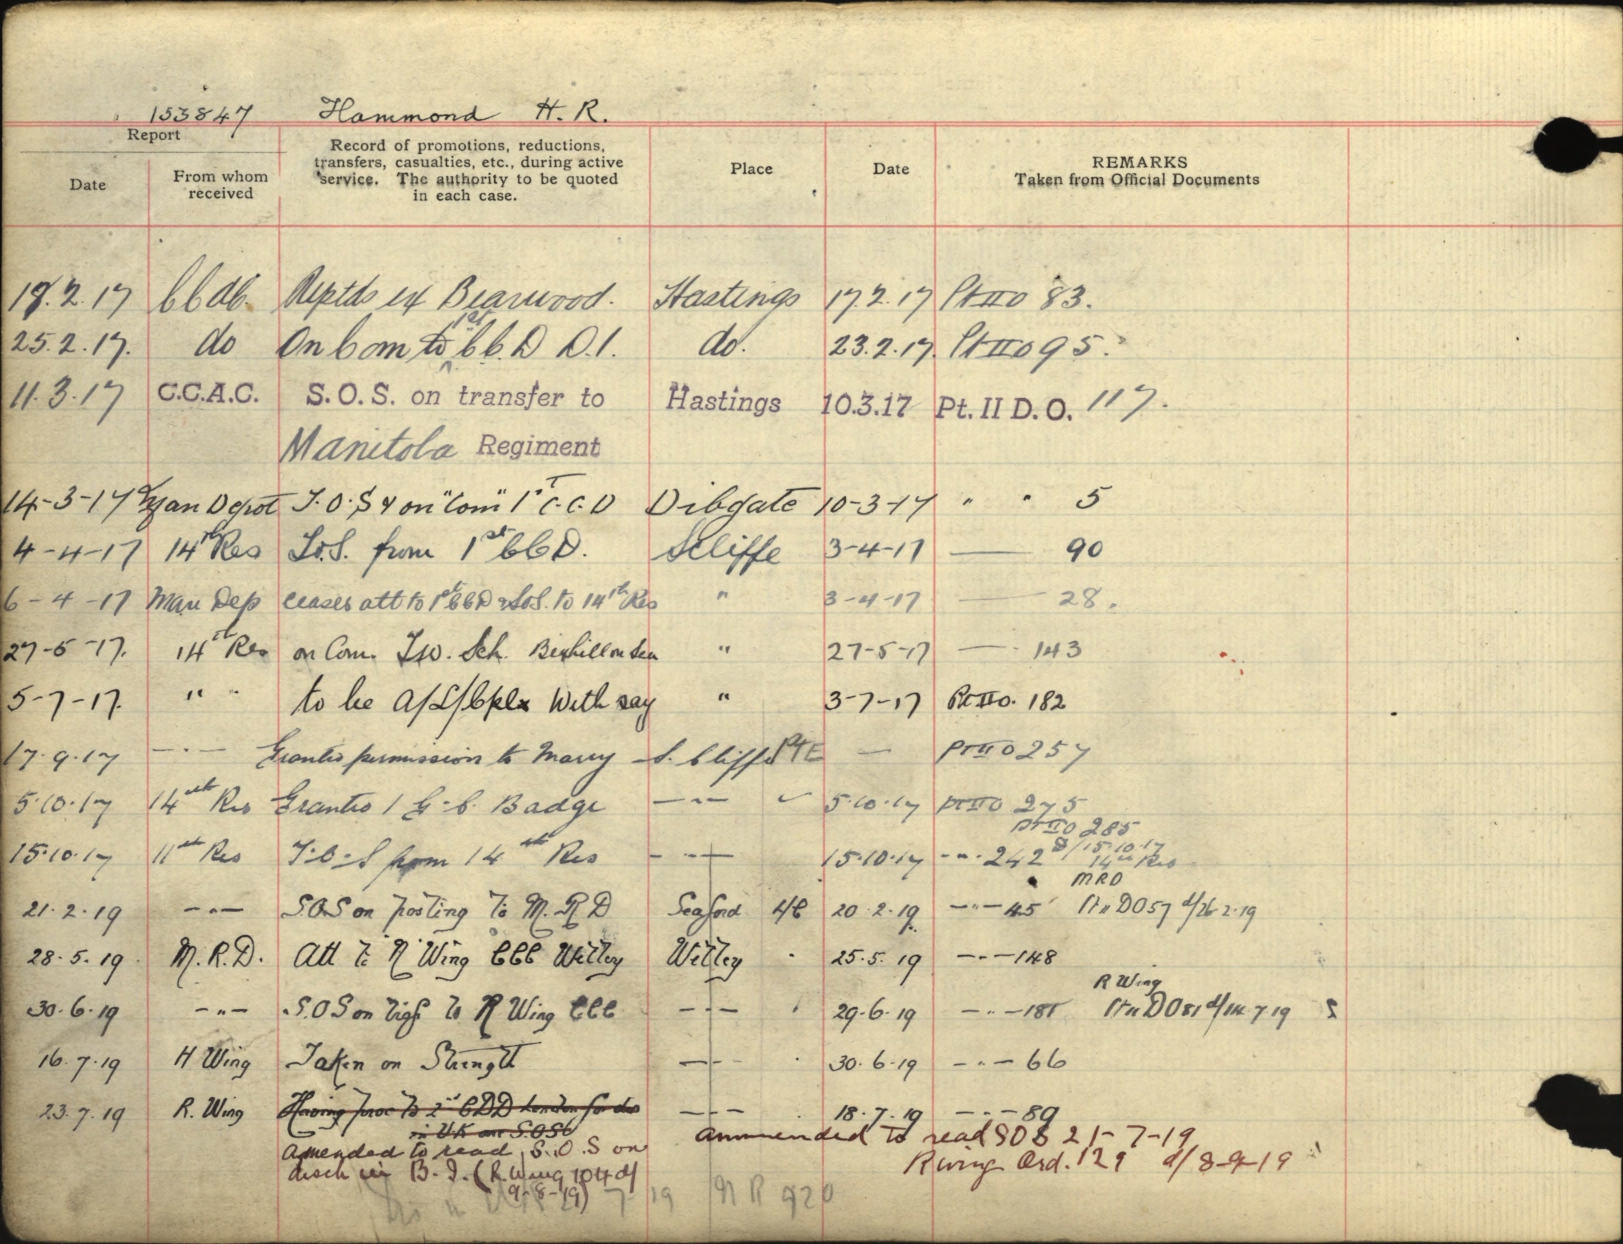 153847 Hammond H. R.
Report
Date
From whom received
Record of promotions, reductions, transfers, casualties, etc., during active service. The authority to be quoted in each case.
Place
Date
REMARKS
Taken from Official Documents
18.2.17 CCdC Reptds ex Bearwood. Hastings 17.2.17 Pt II O 83.
25.2.17. do On Com to 1st C.C.D D.1. do. 23.2.17. Pt II O 95.
11.3.17 C.C.A.C. S.O.S. on transfer to Hastings 10.3.17 Pt. II D.O. 117.
Manitoba Regiment
14-3-17 Man Depot T.O.S & on "Com" 1st C.C.D Dibgate 10-3-17 " " 5
4-4-17 14th Res T.o.S. from 1st CCD. Scliffe 3-4-17 — 90
6-4-17 Man Dep ceases att to 1st CCD & SoS. to 14th Res " 3-4-17 — 28.
27-5-17. 14th Res on Com. Sch. Bexhill on Sea " 27-5-17 — 143
5-7-17. " " to be A/L/Cpl With pay " 3-7-17 Pt II O. 182
17.9.17 — " — Grantd permission to Marry S. Cliffe PTE — Pt II O 257
5.10.17 14th Res Grantd 1 G.C. Badge — " — 5.10.17 Pt II O 275
Pt II O 285
15.10.17 11th Res T.O.S from 14th Res — " — 15.10.17 - " - 242 d/15.10.17
14th Res
MRD
21.2.19 — " — S.O.S on posting to M.R.D Seaford A/C 20.2.19. — " — 45 Pt II DO 57 d/26.2.19
28.5.19 M.R.D. Att to "R" Wing CCC Witley Witley 25.5.19 — " — 148
R Wing
30.6.19 — " — S.O.S on Trsf to R Wing CCC — " — 29.6.19 — " — 181 Pt II DO 81 d/14.7.19
16.7.19 H Wing Taken on Strength — " — 30.6.19 — " — 66
23.7.19 R. Wing Having proc to 2nd CDD London for dis — " — 18.7.19 — " — 89
in UK are S.O.S
Amended to read S.O.S on
disch in B.I. (R. Wing 104 d/
9-8-19)
ammended to read SOS 21-7-19
R wing Ord. 129 d/8-9-19
7 19 N R 920